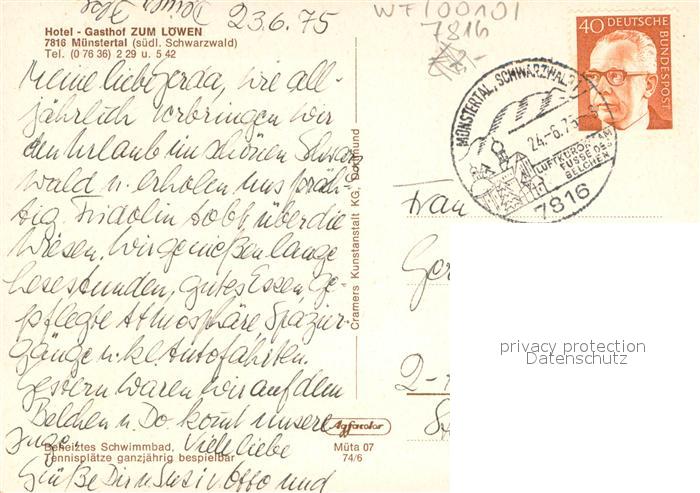 23.6.75
WF100101
7816
2,-
Hotel - Gasthof ZUM LÖWEN
7816 Münstertal (südl. Schwarzwald)
Tel. (0 76 36) 2 29 u. 5 42
Meine liebe Gerda, wie all-
jährlich verbringen wir
den Urlaub im schönen Schwarz
wald u. erholen uns präch-
tig. Fridolin tobt über die
Wiesen. Wir genießen lange
Lesestunden, gutes Essen Ge-
pflegte Atmosphäre Spazier-
gänge u. kl. Autofahrten.
Gestern waren wir auf dem
Belchen u. Do. kom̅t unsere
Inge. Viele liebe
Grüße Dir u. Susi v. Otto und
Beheiztes Schwimmbad,
Tennisplätze ganzjährig bespielbar
Agfacolor
Müta 07
74/6
Cramers Kunstanstalt KG, Dortmund
40 DEUTSCHE
BUNDESPOST
MÜNSTERTAL, SCHWARZWALD 1
24.-6.75
LUFTKURORT AM
FUSSE DES
BELCHEN
7816
Frau
Ger
2-
privacy protection
Datenschutz